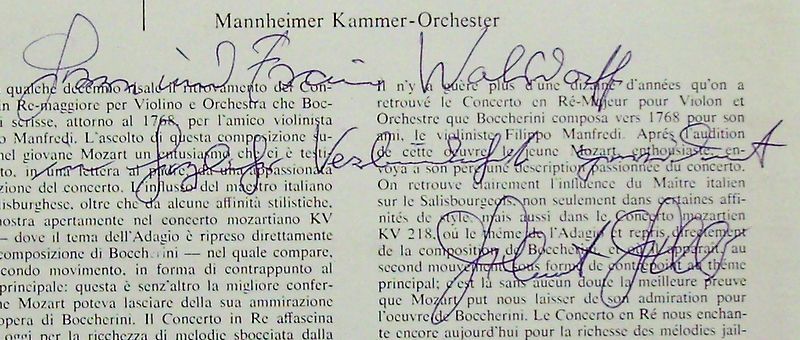 Mannheimer Kammer-Orchester
qualche decennio risale il rinvenimento del Con-
in Re-maggiore per Violino e Orchestra che Boc-
i scrisse, attorno al 1768, per l'amico violinista
Manfredi. L'ascolto di questa composizione su-
nel giovane Mozart un entusiasmo che ci è testi-
to, in una lettera al padre, da una appassionata
zione del concerto. L'influsso del maestro italiano
lisburghese, oltre che da alcune affinità stilistiche,
nostra apertamente nel concerto mozartiano KV
— dove il tema dell'Adagio è ripreso direttamente
composizione di Boccherini — nel quale compare,
condo movimento, in forma di contrappunto al
principale: questa è senz'altro la migliore confer-
he Mozart poteva lasciare della sua ammirazione
opera di Boccherini. Il Concerto in Re affascina
oggi per la ricchezza di melodie sbocciata dalla
Il n'y a guère plus d'une dizaine d'années qu'on a
retrouvé le Concerto en Ré-Majeur pour Violon et
Orchestre que Boccherini composa vers 1768 pour son
ami, le violiniste Filippo Manfredi. Après l'audition
de cette œuvre, le jeune Mozart, enthousiaste, en-
voya à son père une description passionnée du concerto.
On retrouve clairement l'influence du Maître italien
sur le Salisbourgeois non seulement dans certaines affi-
nités de style, mais aussi dans le concerto mozartien
KV 218, où le thème de l'Adagio et repris directement
de la composition de Boccherini et où apparaît au
second mouvement sous forme de contrepoint au thème
principal; c'est là sans aucun doute la meilleure preuve
que Mozart put nous laisser de son admiration pour
l'oeuvre de Boccherini. Le Concerto en Ré nous enchan-
te encore aujourd'hui pour la richesse des mélodies jail-
und Walldorff